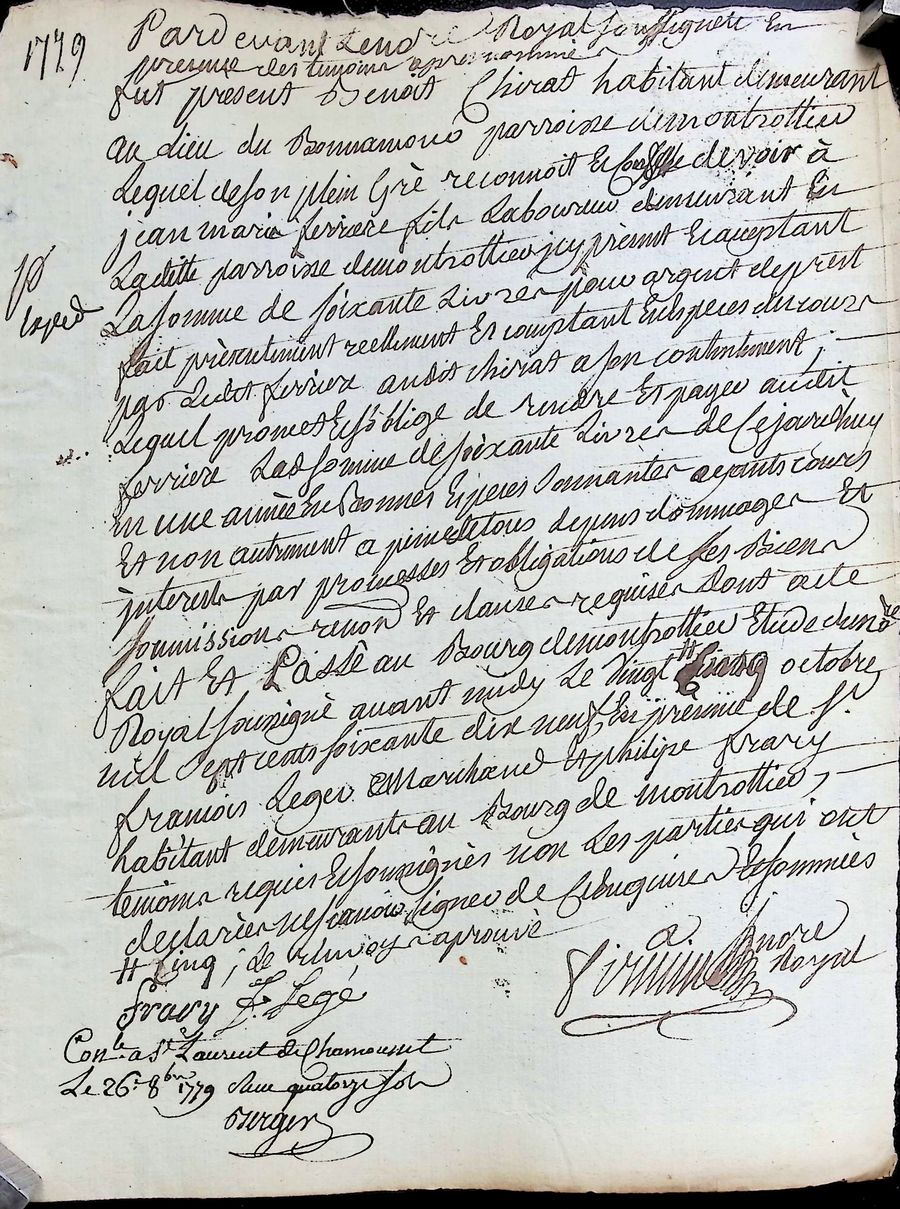 1779
Pardevant Le nore Royal soussigné En
presence des temoins apres nommés
fut present Benoit Chirat habitant demeurant
au lieu du Bonnamond parroisse de montrottier
Lequel de son plein Gré reconnoit Et Confesse devoir à
jean marie ferriere fils Laboureur demeurant En
Laditte parroisse de montrottier icy présent Et acceptant
La somme de soixante Livres pour argent de prest
fait présentement reellement Et comptant En Especes du cours
par Ledit ferriere audit chirat a son contentement ;
Lequel promet Et s'oblige de rendre Et payer audit
ferriere Lad somme de soixante Livres de Cejourd'huy
En une année En Bonnes Especes Sonnantes ayants cours
Et non autrement a peine de tous depens dommages Et
interests par promesses Et obligations de ses Biens
soumissions renon Et clauses requises Dont acte
fait Et Passé au Bourg de montrottier Etude du nore
Royal soussigné avant midy Le Vingt # Cinq octobre
mil sept cents soixante dix neuf En présence de Sr
francois Leger Marchand Et philipe frary
habitant demeurants au Bourg de montrottier,
temoins requis Et soussignés non Les parties qui ont
declarées ne scavoir signer de Ce enquises Et sommées
# Cinq ; Le renvoy aprouvé
frary F. Legé
nore Royal
Conlé a St Laurent de Chamousset
Le 26e 8bre 1779 Reçu quatorze sols
Berger
Exped